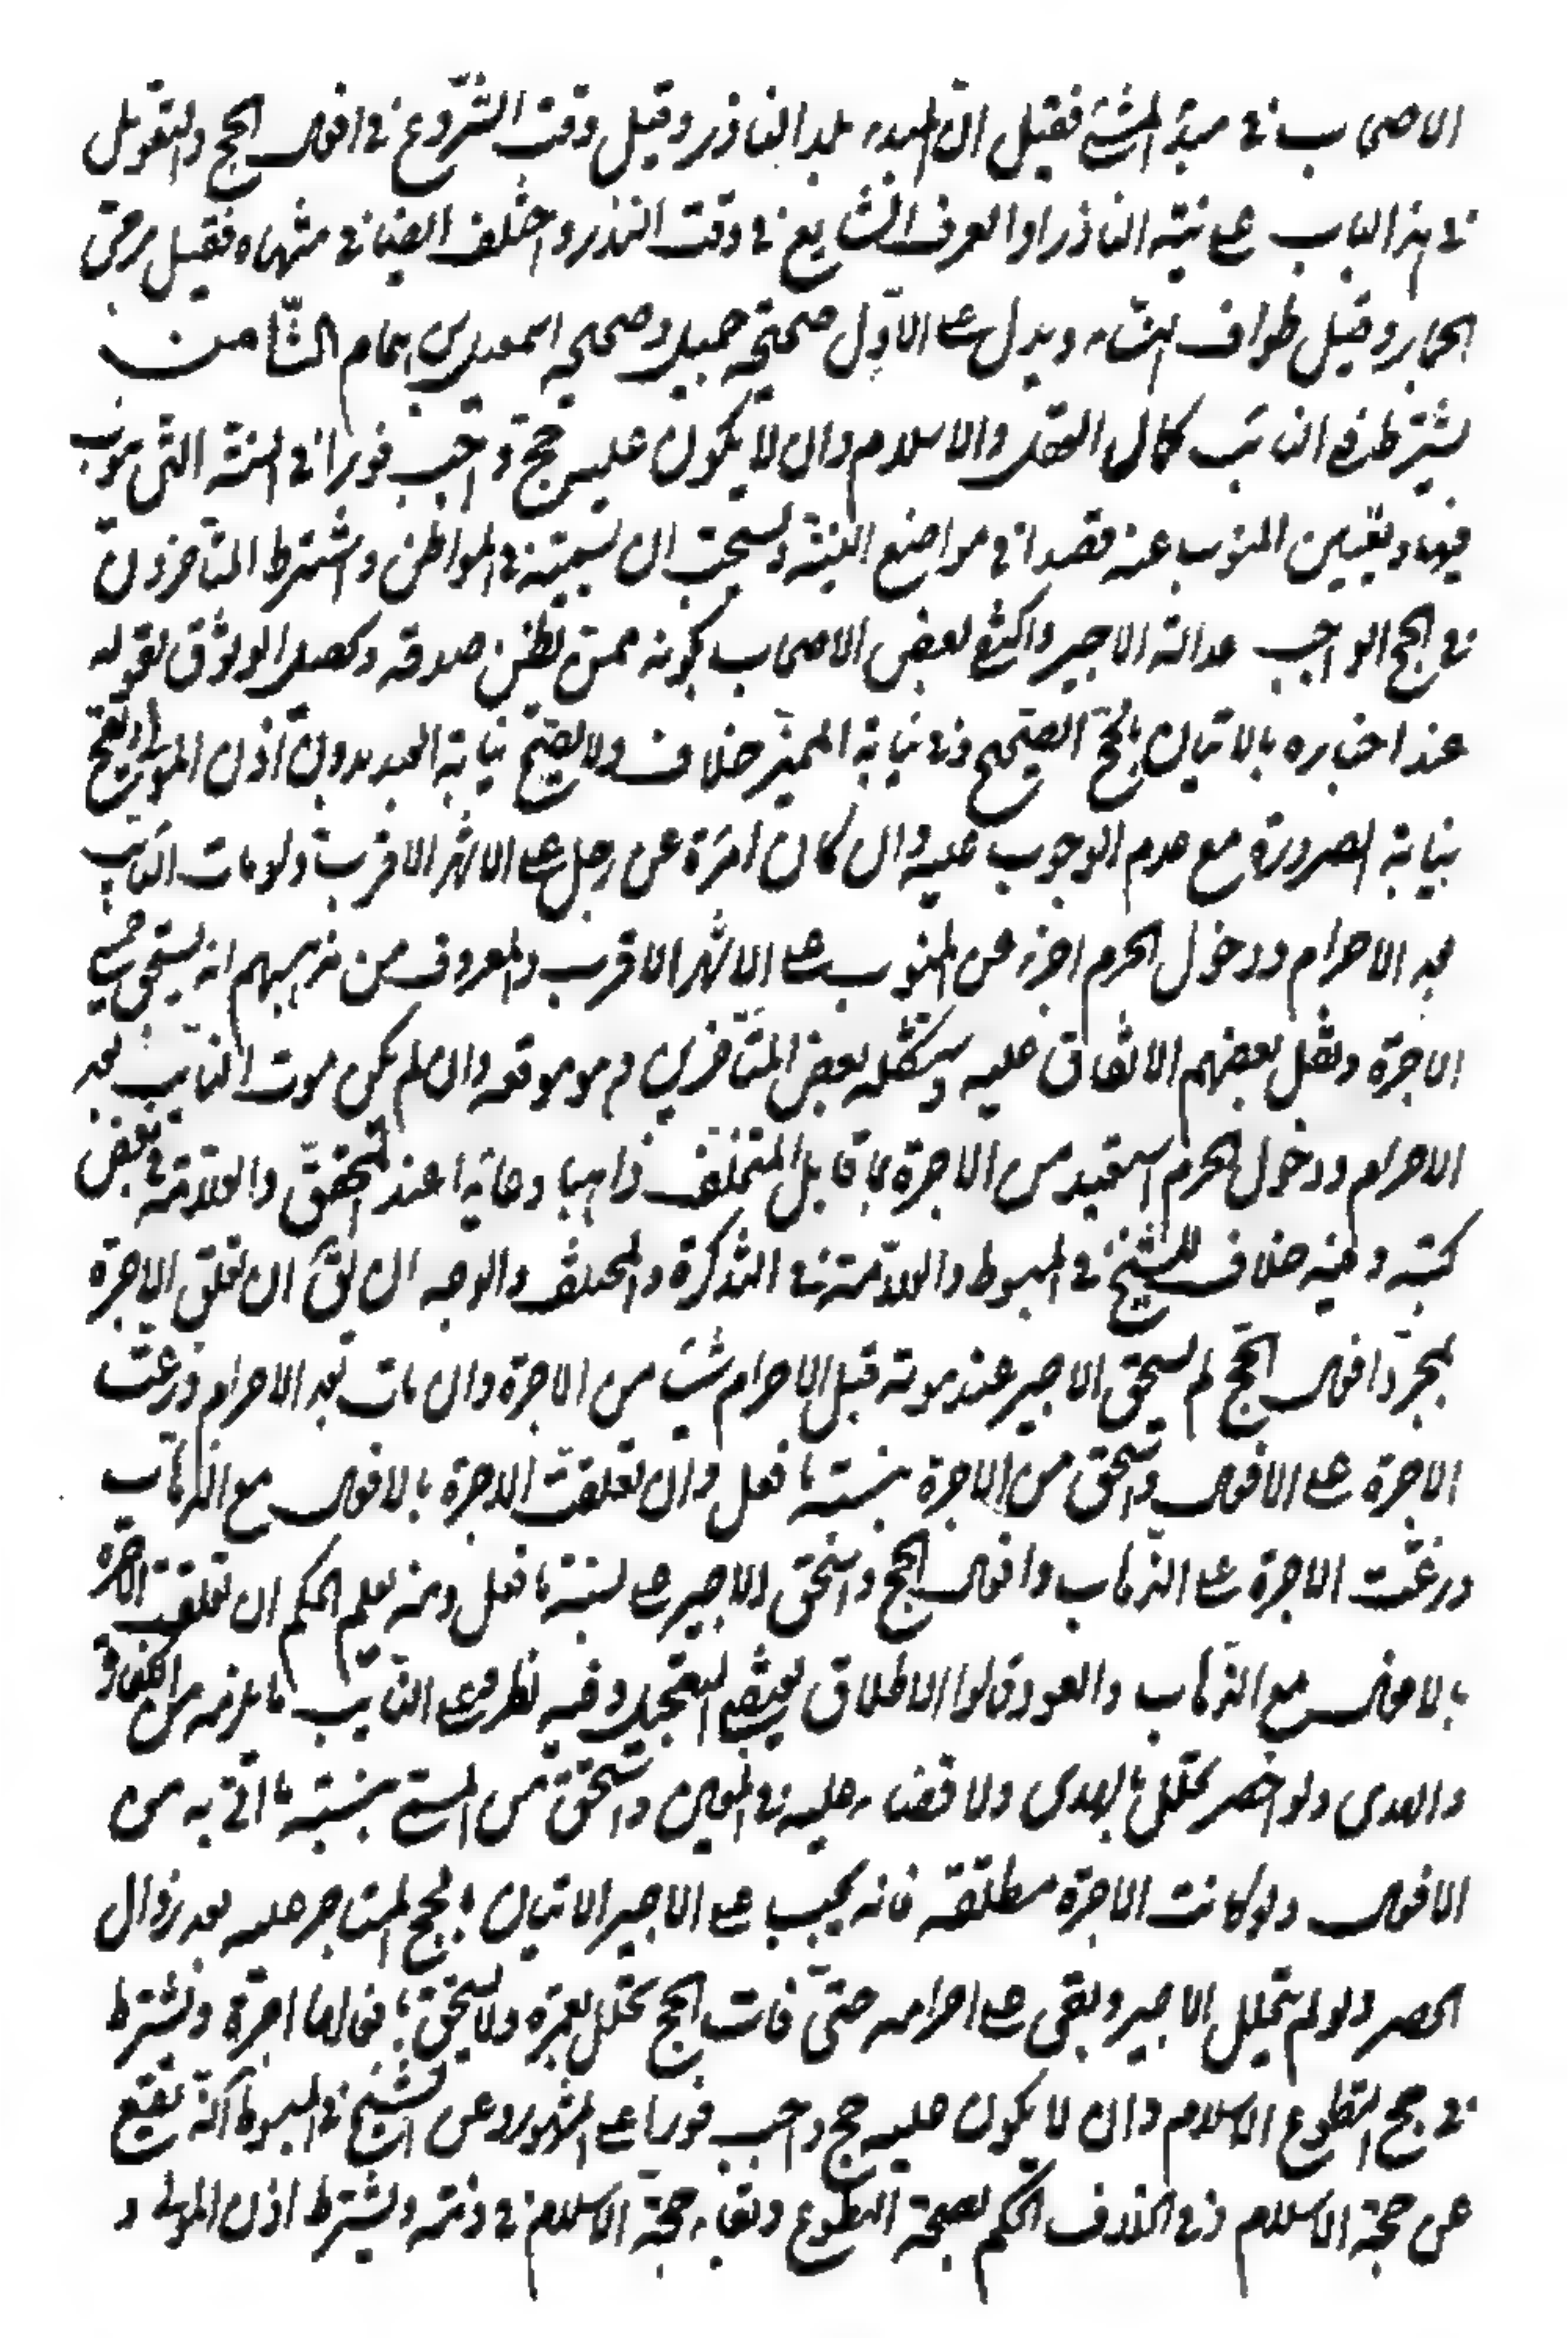 الاصحاب في مبدء المشي فقيل انّ المبدء بلد الناذر وقيل وقت الشّروع في افعال الحج والتعويل
في هذا الباب على نيّة الناذر او العرف الشّايع في وقت النذر واختلف ايضا في منتهاه فقيل رمي
الجمار وقيل طواف النساء ويدل على الاوّل صحيحة جميل وصحيحة اسمعيل بن همام الثّامن
يشترط في النائب كمال العقل والاسلام وان لا يكون عليه حج واجب فورا في السنة التي ينوب
فيها وتعيين المنوب عنه قصدا في مواضع النيّة ويستحب ان يسميه في المواطن واشترط المتأخرون
في الحج الواجب عدالة الاجير واكتفى بعض الاصحاب بكونه ممن يظن صدقه ويحصل الوثوق بقوله
عند اخباره بالاتيان بالحج الصّحيح وفي نيابة المميّز خلاف ولا يصحّ نيابة العبد بدون اذن المولى ويصح
نيابة الصرورة مع عدم الوجوب عليه وان كان امرأة عن رجل على الاشهر الاقرب ولو مات النائب
بعد الاحرام ودخول الحرم اجزء عن المنوب على الاشهر الاقرب والمعروف من مذهبهم انه يستحق جميع
الاجرة ونقل بعضهم الاتفاق عليه واستشكله بعض المتأخرين وهو موقعه وان لم يكن موت النائب بعد
الاحرام ودخول الحرم استعيد من الاجرة ما قابل المتخلّف ذاهبا وعائدا عند المحقّق والعلّامة في بعض
كتبه وفيه خلاف للشيخ في المبسوط والعلّامة في التذكرة والمختلف والوجه ان يقال ان تعلق الاجرة
بمجرّد افعال الحج لم يستحق الاجير عند موته قبل الاحرام شيئا من الاجرة وان مات بعد الاحرام وزعت
الاجرة على الافعال واستحق من الاجرة بنسبة ما فعل وان تعلقت الاجرة بالافعال مع الذهاب
وزعّت الاجرة على الذهاب وافعال الحج واستحق الاجير على نسبة ما فعل ومنه يعلم الحكم ان تعلقت الاجرة
بالافعال مع الذهاب والعود وقالوا الاطلاق يقتضي التعجيل وفيه نظر وعلى النائب ما يلزمه من الكفارة
والهدى ولو احصر تحلّل بالهدى ولا قضاء عليه في المعين واستحق من المسمّى بنسبة ما اتى به من
الافعال ولو كانت الاجرة مطلقة فانه يجب على الاجير الاتيان بالحج المستاجر عليه بعد زوال
الحصر ولو لم يتحلل الاجير وبقى على احرامه حتّى فات الحج تحلّل بعمرة ولا يستحق بافعالها اجرة ويشترط
في حج التطوع الاسلام وان لا يكون عليه حج واجب فورا على المشهور وعن الشيخ في المبسوط انّه يقع
عن حجة الاسلام وفي الخلاف الحكم بصحّة التطوع وبقاء حجة الاسلام في ذمته ويشترط اذن المولى و